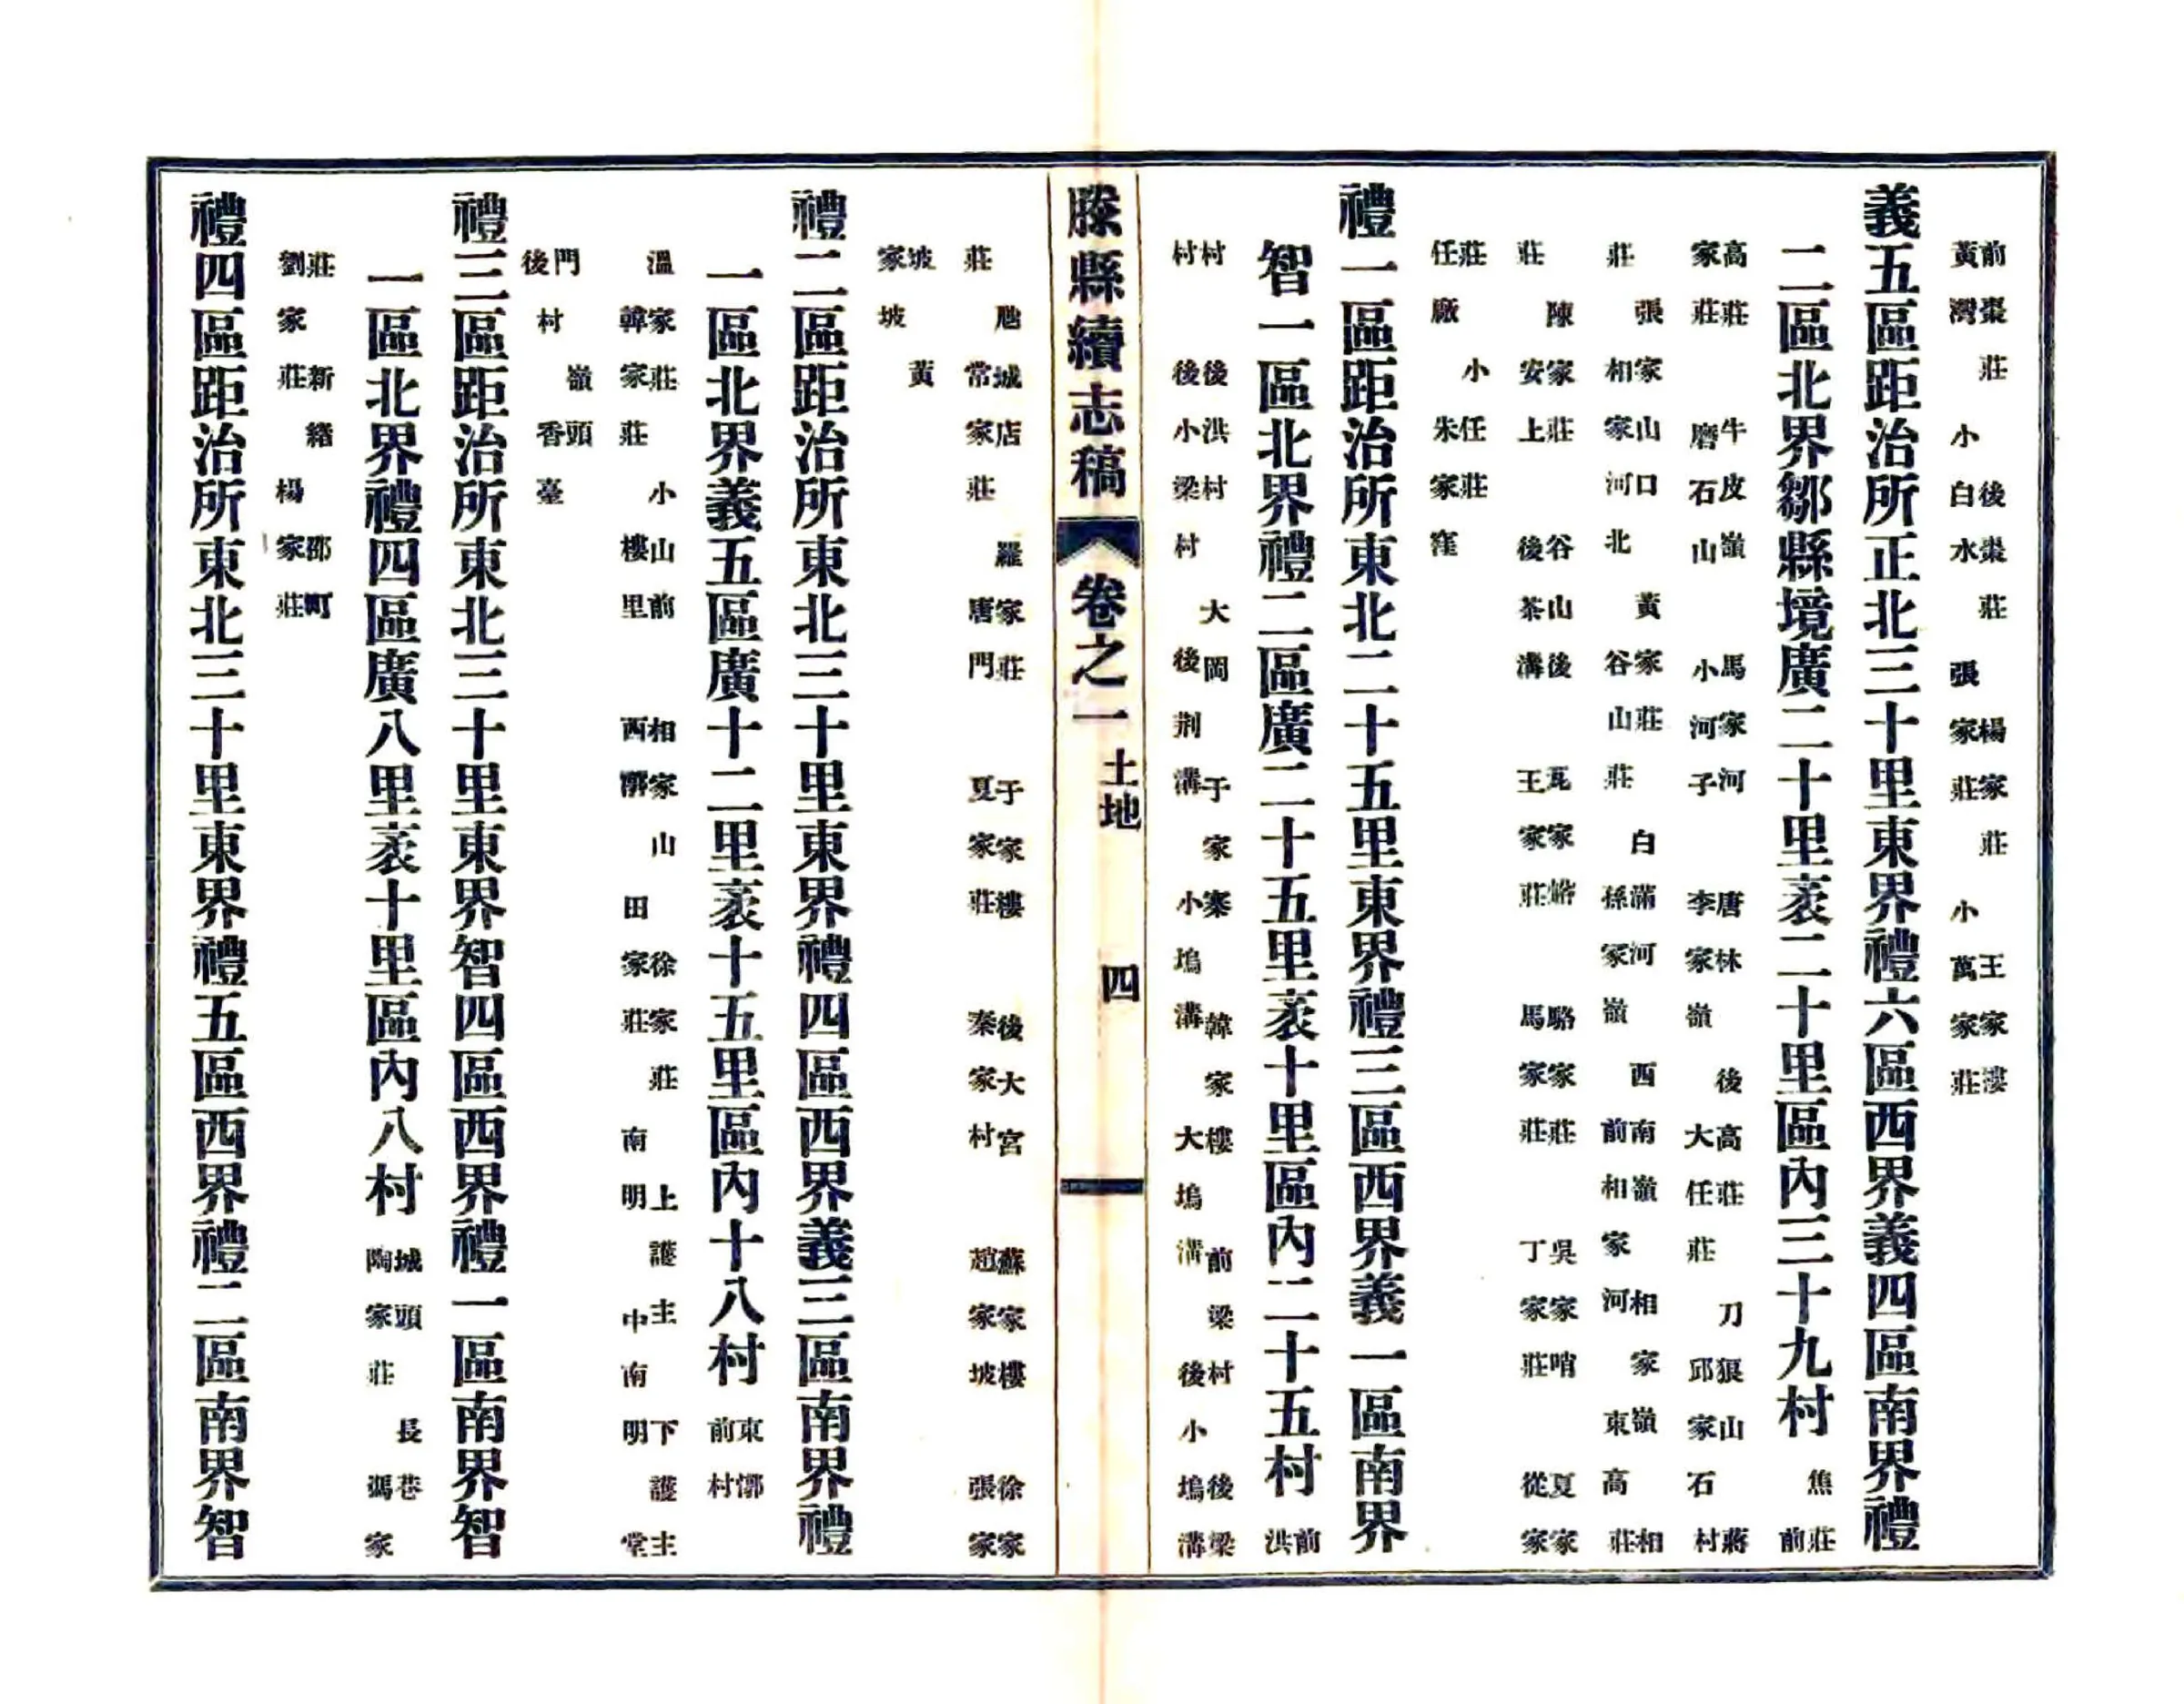 前棗莊　後棗莊　楊家莊　王家漊
黃灣　小白水　張家莊　小萬家莊
義五區距治所正北三十里東界禮六區西界義四區南界禮
二區北界鄒縣境廣二十里袤二十里區內三十九村　焦莊
前
高莊　牛皮嶺　馬家河　唐林　後高莊　刀狼山　蔣
家莊　磨石山　小河子　李家嶺　大任莊　邱家石村
張家山口　黃家莊　白滿河　西南嶺　相家嶺　相
莊　相家河北　谷山莊　孫家嶺　前相家河　東高莊
陳家莊　谷山後　瓦家峪　駱家莊　吳家哨　夏家
莊　安上　後茶溝　王家莊　馬家莊　丁家莊　從家
莊　小任莊
任廠　朱家窪
禮一區距治所東北二十五里東界禮三區西界義一區南界
智一區北界禮二區廣二十五里袤十里區內二十五村　前
洪
村　後洪村　大岡　于家寨　韓家樓　前梁村　後梁
村　後小梁村　後荆溝　小塢溝　大塢溝　後小塢溝
滕縣續志稿　卷之一　土地　四
虺城店　羅家莊　于家樓　後大宮　蘇家樓　徐家
莊　常家莊　唐門　夏家莊　秦家村　趙家坡　張家
坡　黃
家坡
禮二區距治所東北三十里東界禮四區西界義三區南界禮
一區北界義五區廣十二里袤十五里區內十八村　東郭
前村
溫家莊　小山前　相家山　徐家莊　上護主　下護主
韓家莊　樓里　西郭　田家莊　南明中　南明堂
門　嶺頭
後村　香臺
禮三區距治所東北三十里東界智四區西界禮一區南界智
一區北界禮四區廣八里袤十里區內八村　城頭　長巷
陶家莊　馮家
莊　新緒　邵町
劉家莊　楊家莊
禮四區距治所東北三十里東界禮五區西界禮二區南界智